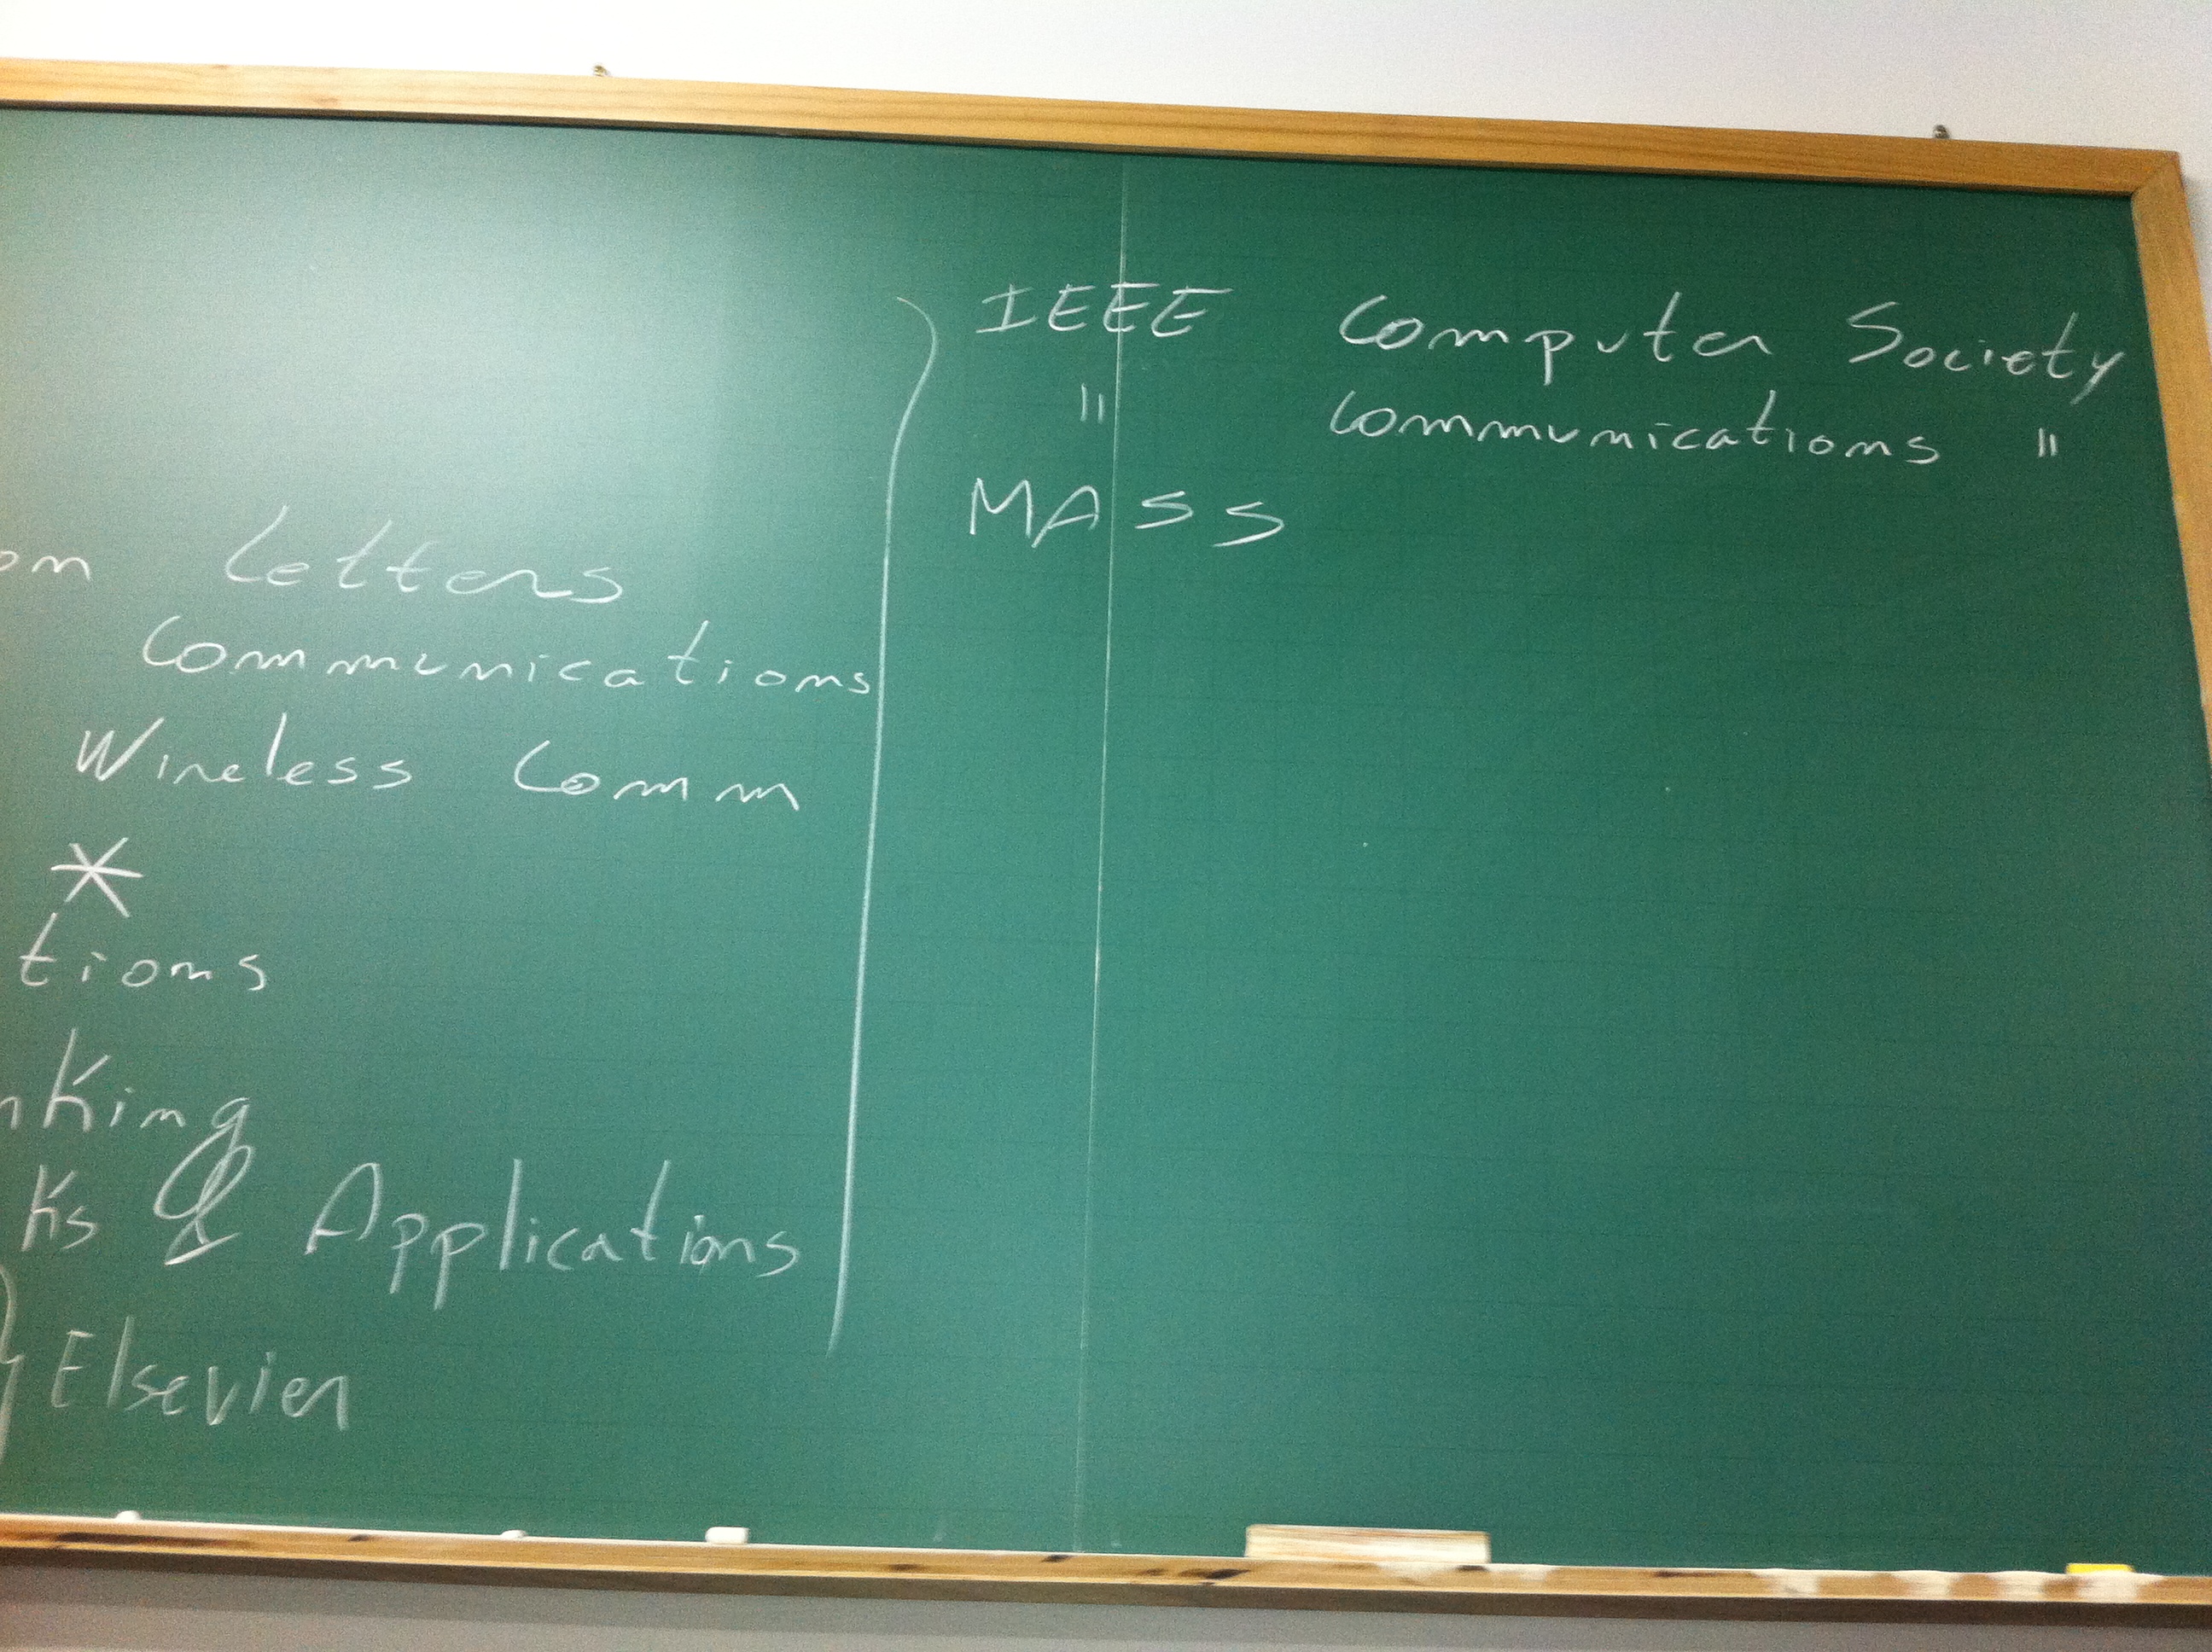 om Letters
Communications
Wireless Comm
*
tions
nking
ks & Applications
} Elsevier
IEEE Computer Society
" Communications "
MASS